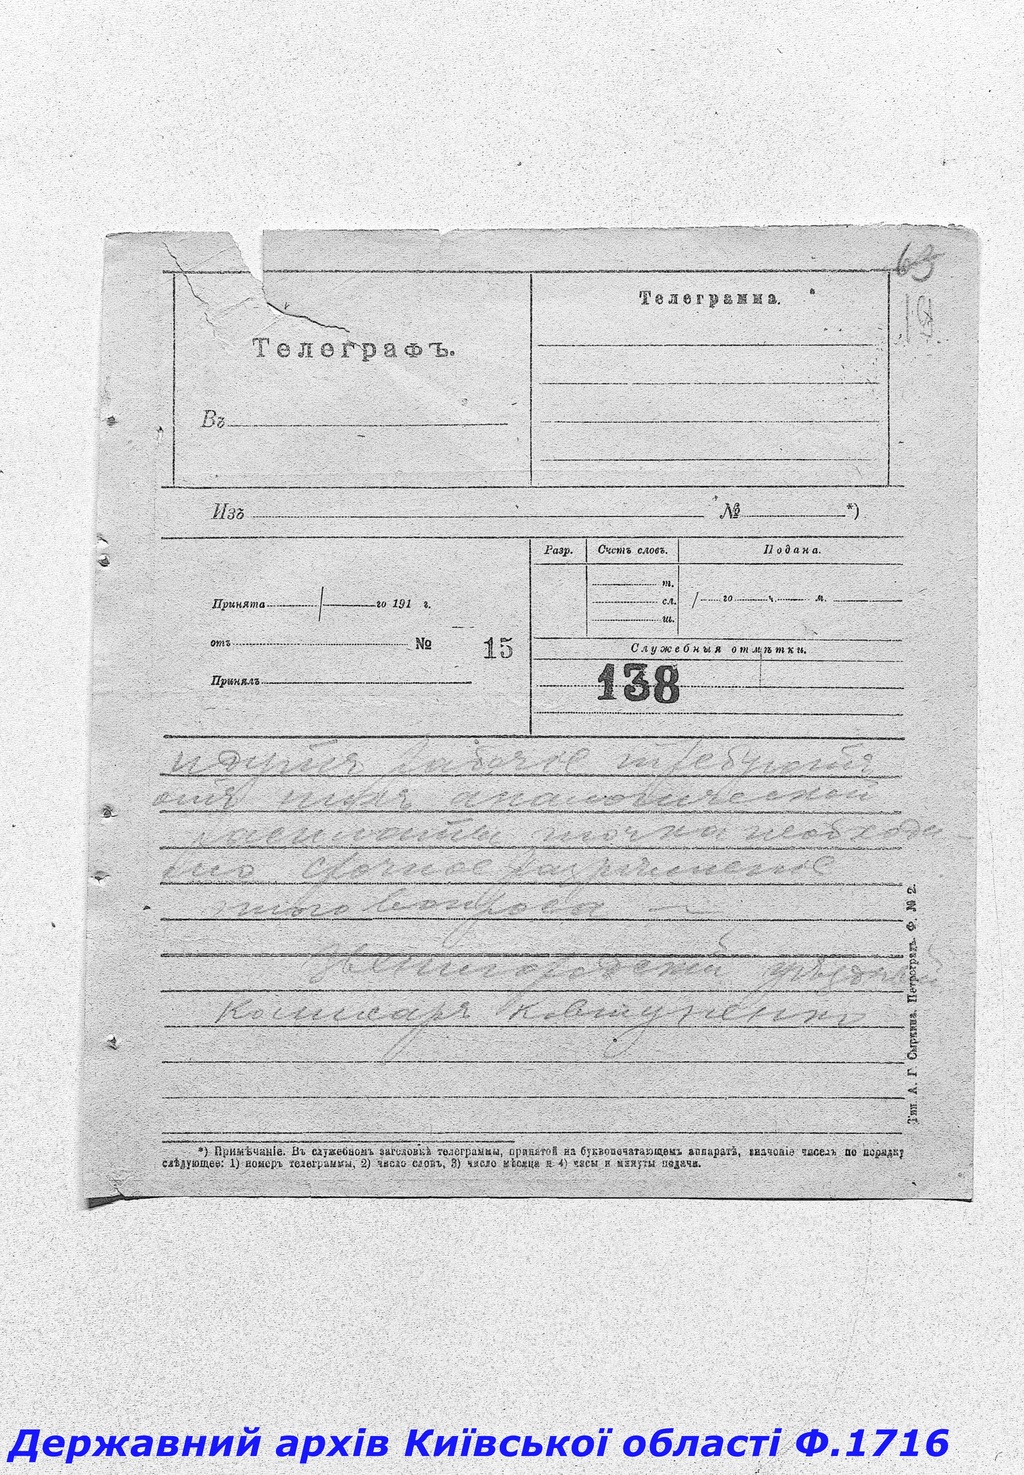 63
19.
Телеграфъ.
Въ
Телеграмма.
Изъ № *)
Принята го 191 г.
отъ № 15
Принялъ
Разр. Счетъ словъ. Подана.
т.
сл.
ш.
го ч. м.
Служебныя отмѣтки.
138
рабочіе требуютъ
аналогической
точка необходи
мо срочное разъясненіе
этого вопроса —
Звенигородскій уѣздный
Комиссаръ Ковтуненко
Тип. А. Г. Сыркина. Петроградъ. Ф. № 2.
*) Примѣчаніе. Въ служебномъ заголовкѣ телеграммы, принятой на буквопечатающемъ аппаратѣ, значеніе чиселъ по порядку
слѣдующее: 1) номеръ телеграммы, 2) число словъ, 3) число мѣсяца и 4) часы и минуты подачи.
Державний архів Київської області Ф.1716